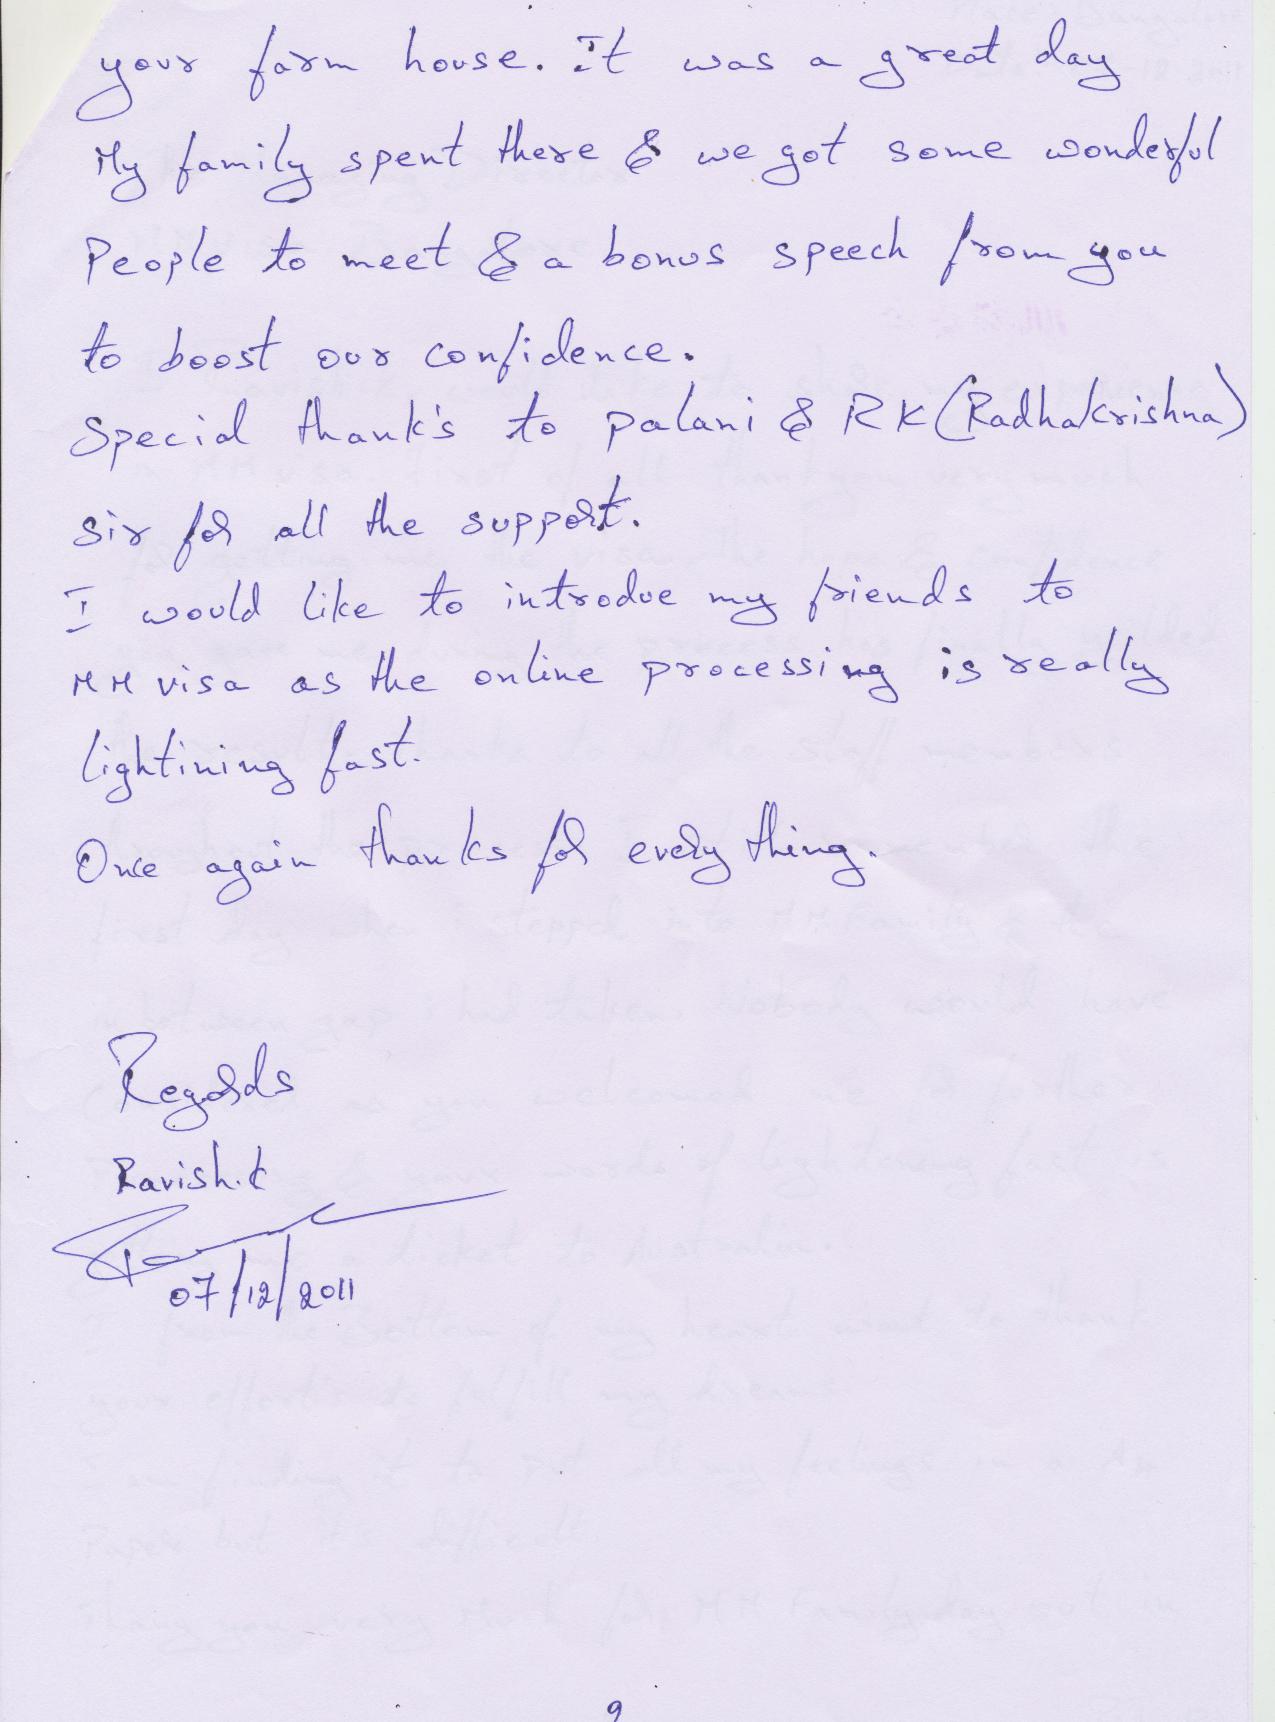 your farm house. It was a great day
My family spent there & we got some wonderful
People to meet & a bonus speech from you
to boost our confidence.
Special thank's to Palani & RK (Radhakrishna)
sir for all the support.
I would like to introdue my friends to
MM visa as the online processing is really
lightining fast.
Once again thanks for every thing.
Regards
Ravish.k
07/12/2011
9